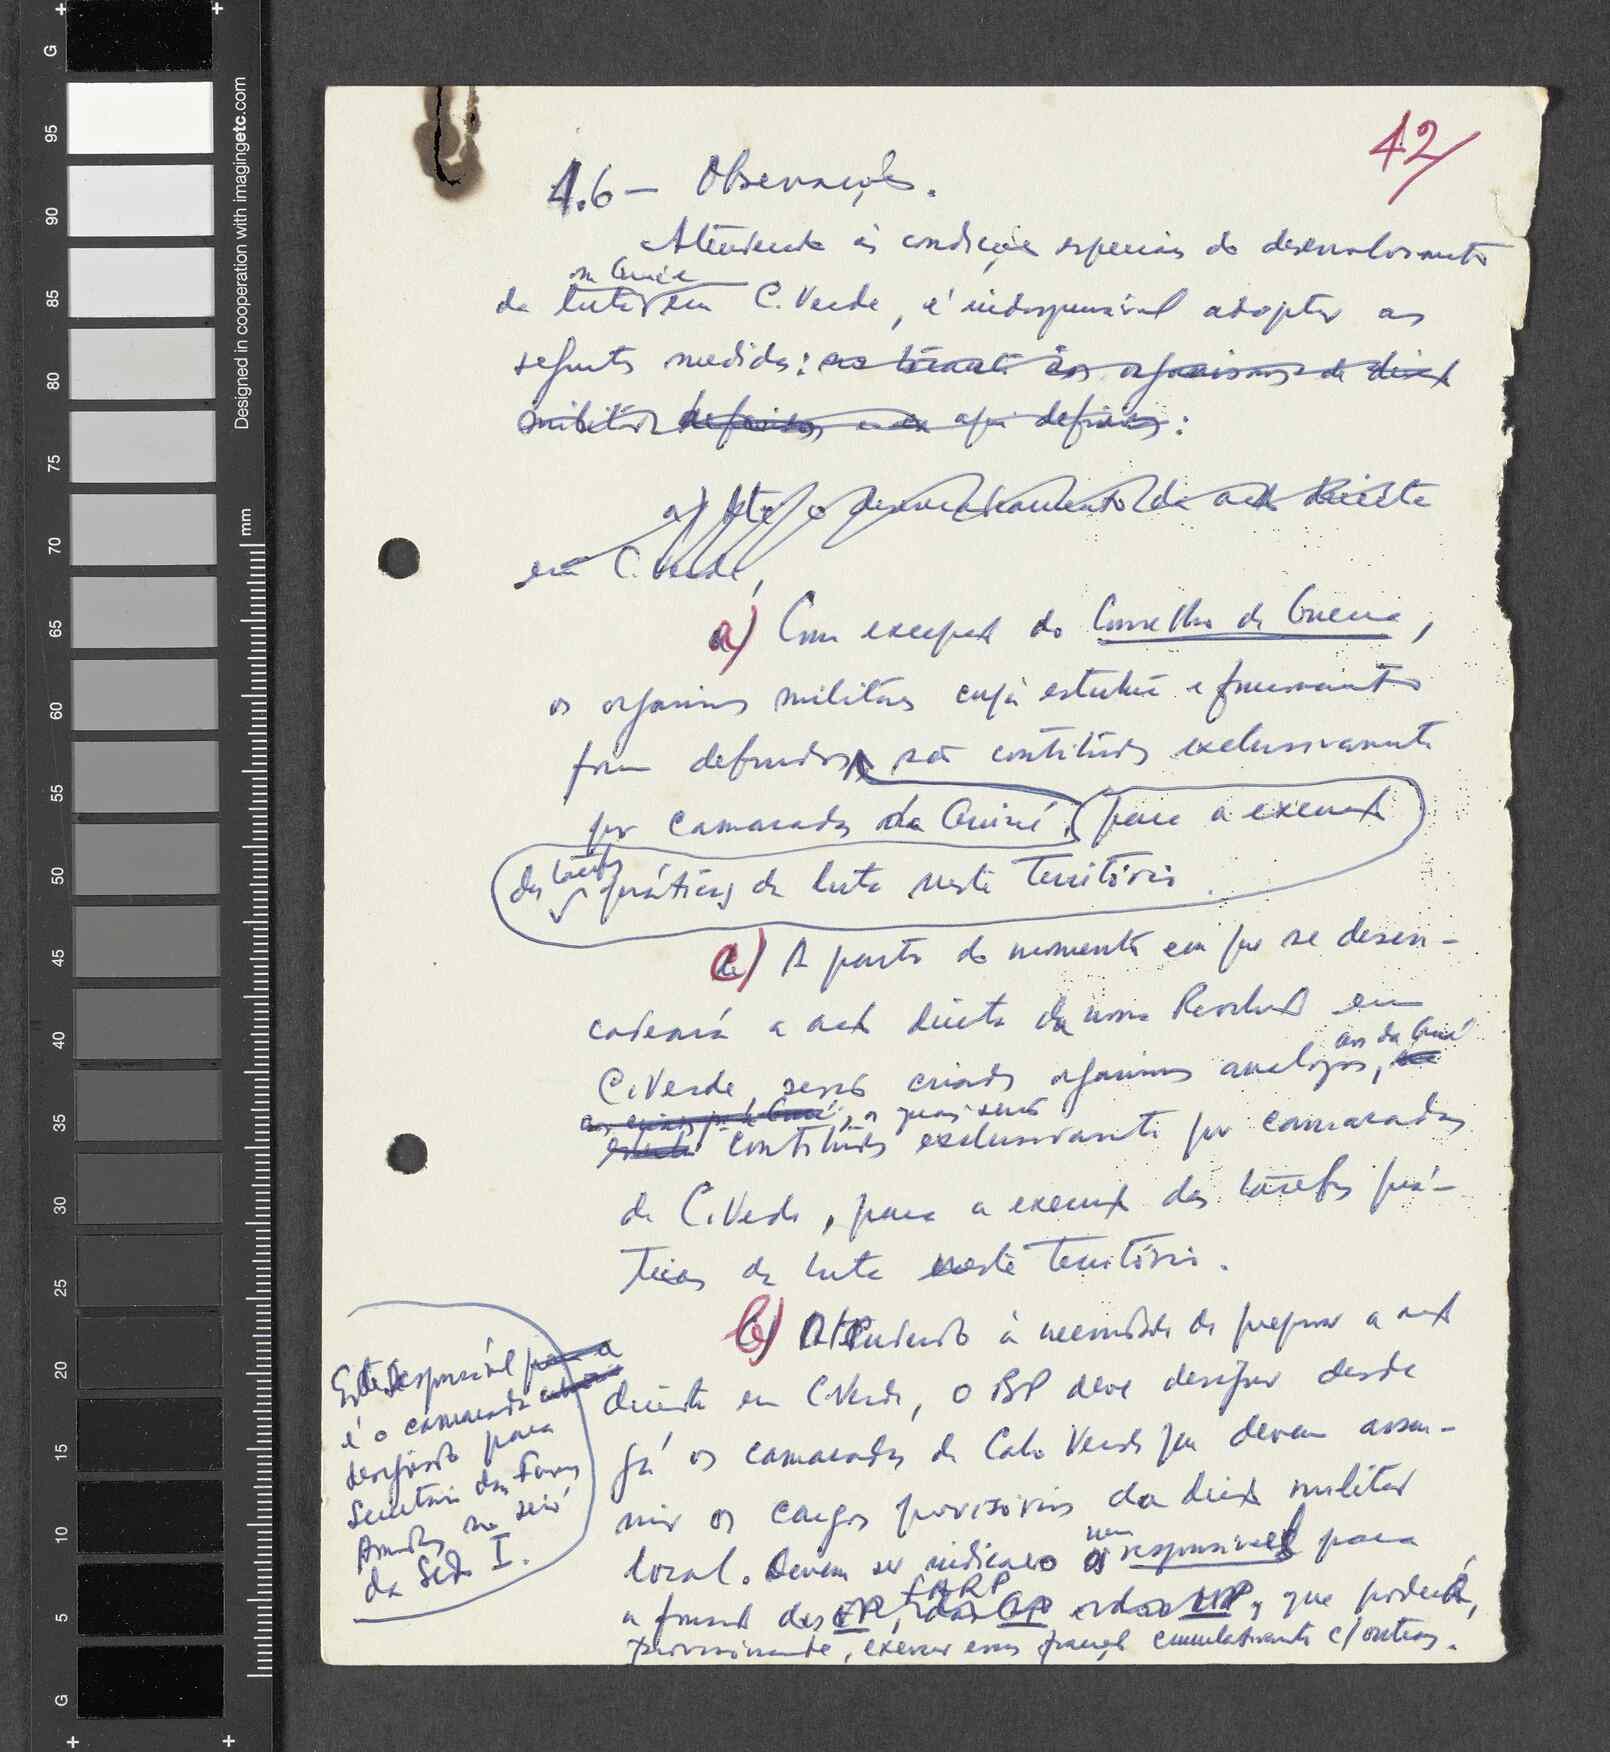 42
4.6 — Observações.
Atendendo às condições especiais do desenvolvimento
na Guiné e
da luta em C. Verde, é indispensável adoptar as
seguintes medidas:
a) Até o desencadeamento da acção directa
em C. Verde,
a) Com excepção do Conselho de Guerra,
os organismos militares cuja estrutura e funcionamento
foram definidos, são constituídos exclusivamente
por camaradas da Guiné, para a execução
das tarefas práticas da luta neste Território.
c) A partir do momento em que se desen-
cadeará a acção directa da nossa Revolução em
aos da Guiné
C. Verde, serão criados organismos análogos,
os quais serão
constituídos exclusivamente por camaradas
de C. Verde, para a execução das tarefas prá-
ticas da luta neste Território.
b) Atendendo à necessidade de preparar a acção
directa em C. Verde, o BP deve designar desde
já os camaradas de Cabo Verde que devem assu-
mir os cargos provisórios da direcção militar
local. Devem ser indicado um responsável para
FARP
a formação das FP, das e das MP, que poderá,
provisoriamente, exercer essas funções cumulativamente c/ outras.
Este responsável para a
é o camarada
designado para
Secretário das Forças
Armadas no seio
da Secção I.
Designed in cooperation with imagingetc.com
mm
G
95
90
85
80
75
70
65
60
55
50
45
40
35
30
25
20
15
10
5
G